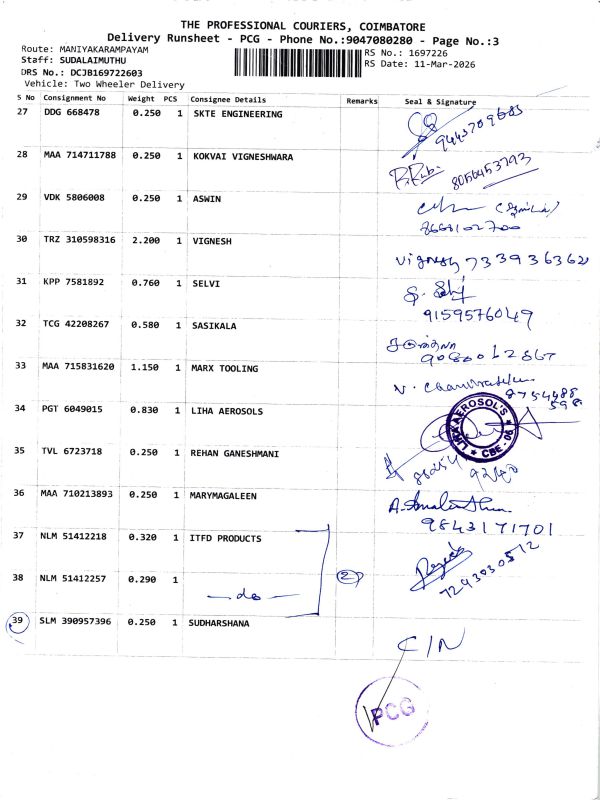 THE PROFESSIONAL COURIERS, COIMBATORE
Delivery Runsheet - PCG - Phone No.:9047080280 - Page No.:3
Route: MANIYAKARAMPAYAM
RS No.: 1697226
Staff: SUDALAIMUTHU
RS Date: 11-Mar-2026
DRS No.: DCJB169722603
Vehicle: Two Wheeler Delivery
S No Consignment No Weight PCS Consignee Details Remarks Seal & Signature
27 DDG 668478 0.250 1 SKTE ENGINEERING
9443709685
28 MAA 714711788 0.250 1 KOKVAI VIGNESHWARA
8056453793
29 VDK 5806008 0.250 1 ASWIN
8668102700
30 TRZ 310598316 2.200 1 VIGNESH
Vignesh 7339363621
31 KPP 7581892 0.760 1 SELVI
9159576049
32 TCG 42208267 0.580 1 SASIKALA
33 MAA 715831620 1.150 1 MARX TOOLING
8754488
598
34 PGT 6049015 0.830 1 LIHA AEROSOLS
AEROSOL'S
CBE - 06
35 TVL 6723718 0.250 1 REHAN GANESHMANI
36 MAA 710213893 0.250 1 MARYMAGALEEN
9843171701
37 NLM 51412218 0.320 1 ITFD PRODUCTS
38 NLM 51412257 0.290 1 -do- 2
7293030512
39 SLM 390957396 0.250 1 SUDHARSHANA
C/N
PCG